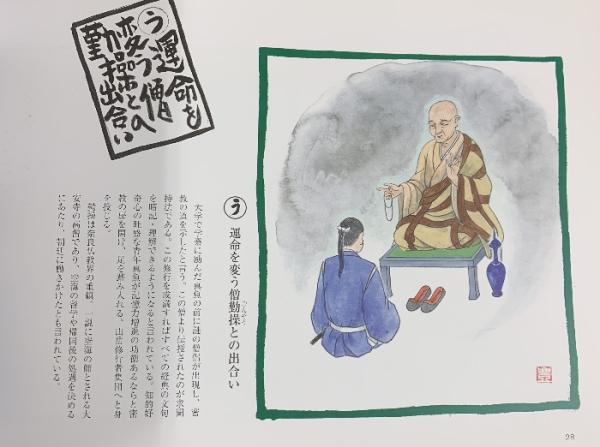 う 運命を
変う僧
勤操との
出合い
う 運命を変う僧勤操との出合い
ごんそう
大学で学業に励んだ真魚の前に謎の僧侶が出現し、密
教の道を示したと言う。この僧より伝授されたのが求聞
持法である。この修行を成満すればすべての経典の文句
を暗記・理解できるようになると言われている。知的好
奇心の旺盛な青年真魚が記憶力増進の功徳あるならと密
教の扉を開け、足を踏み入れる。山岳修行者集団へと身
を投じる。
勤操は奈良仏教界の重鎮。一説に空海の師とされる大
安寺の高僧であり、空海の留学や帰国後の処遇を決める
にあたり、朝廷に働きかけたとも言われている。
28